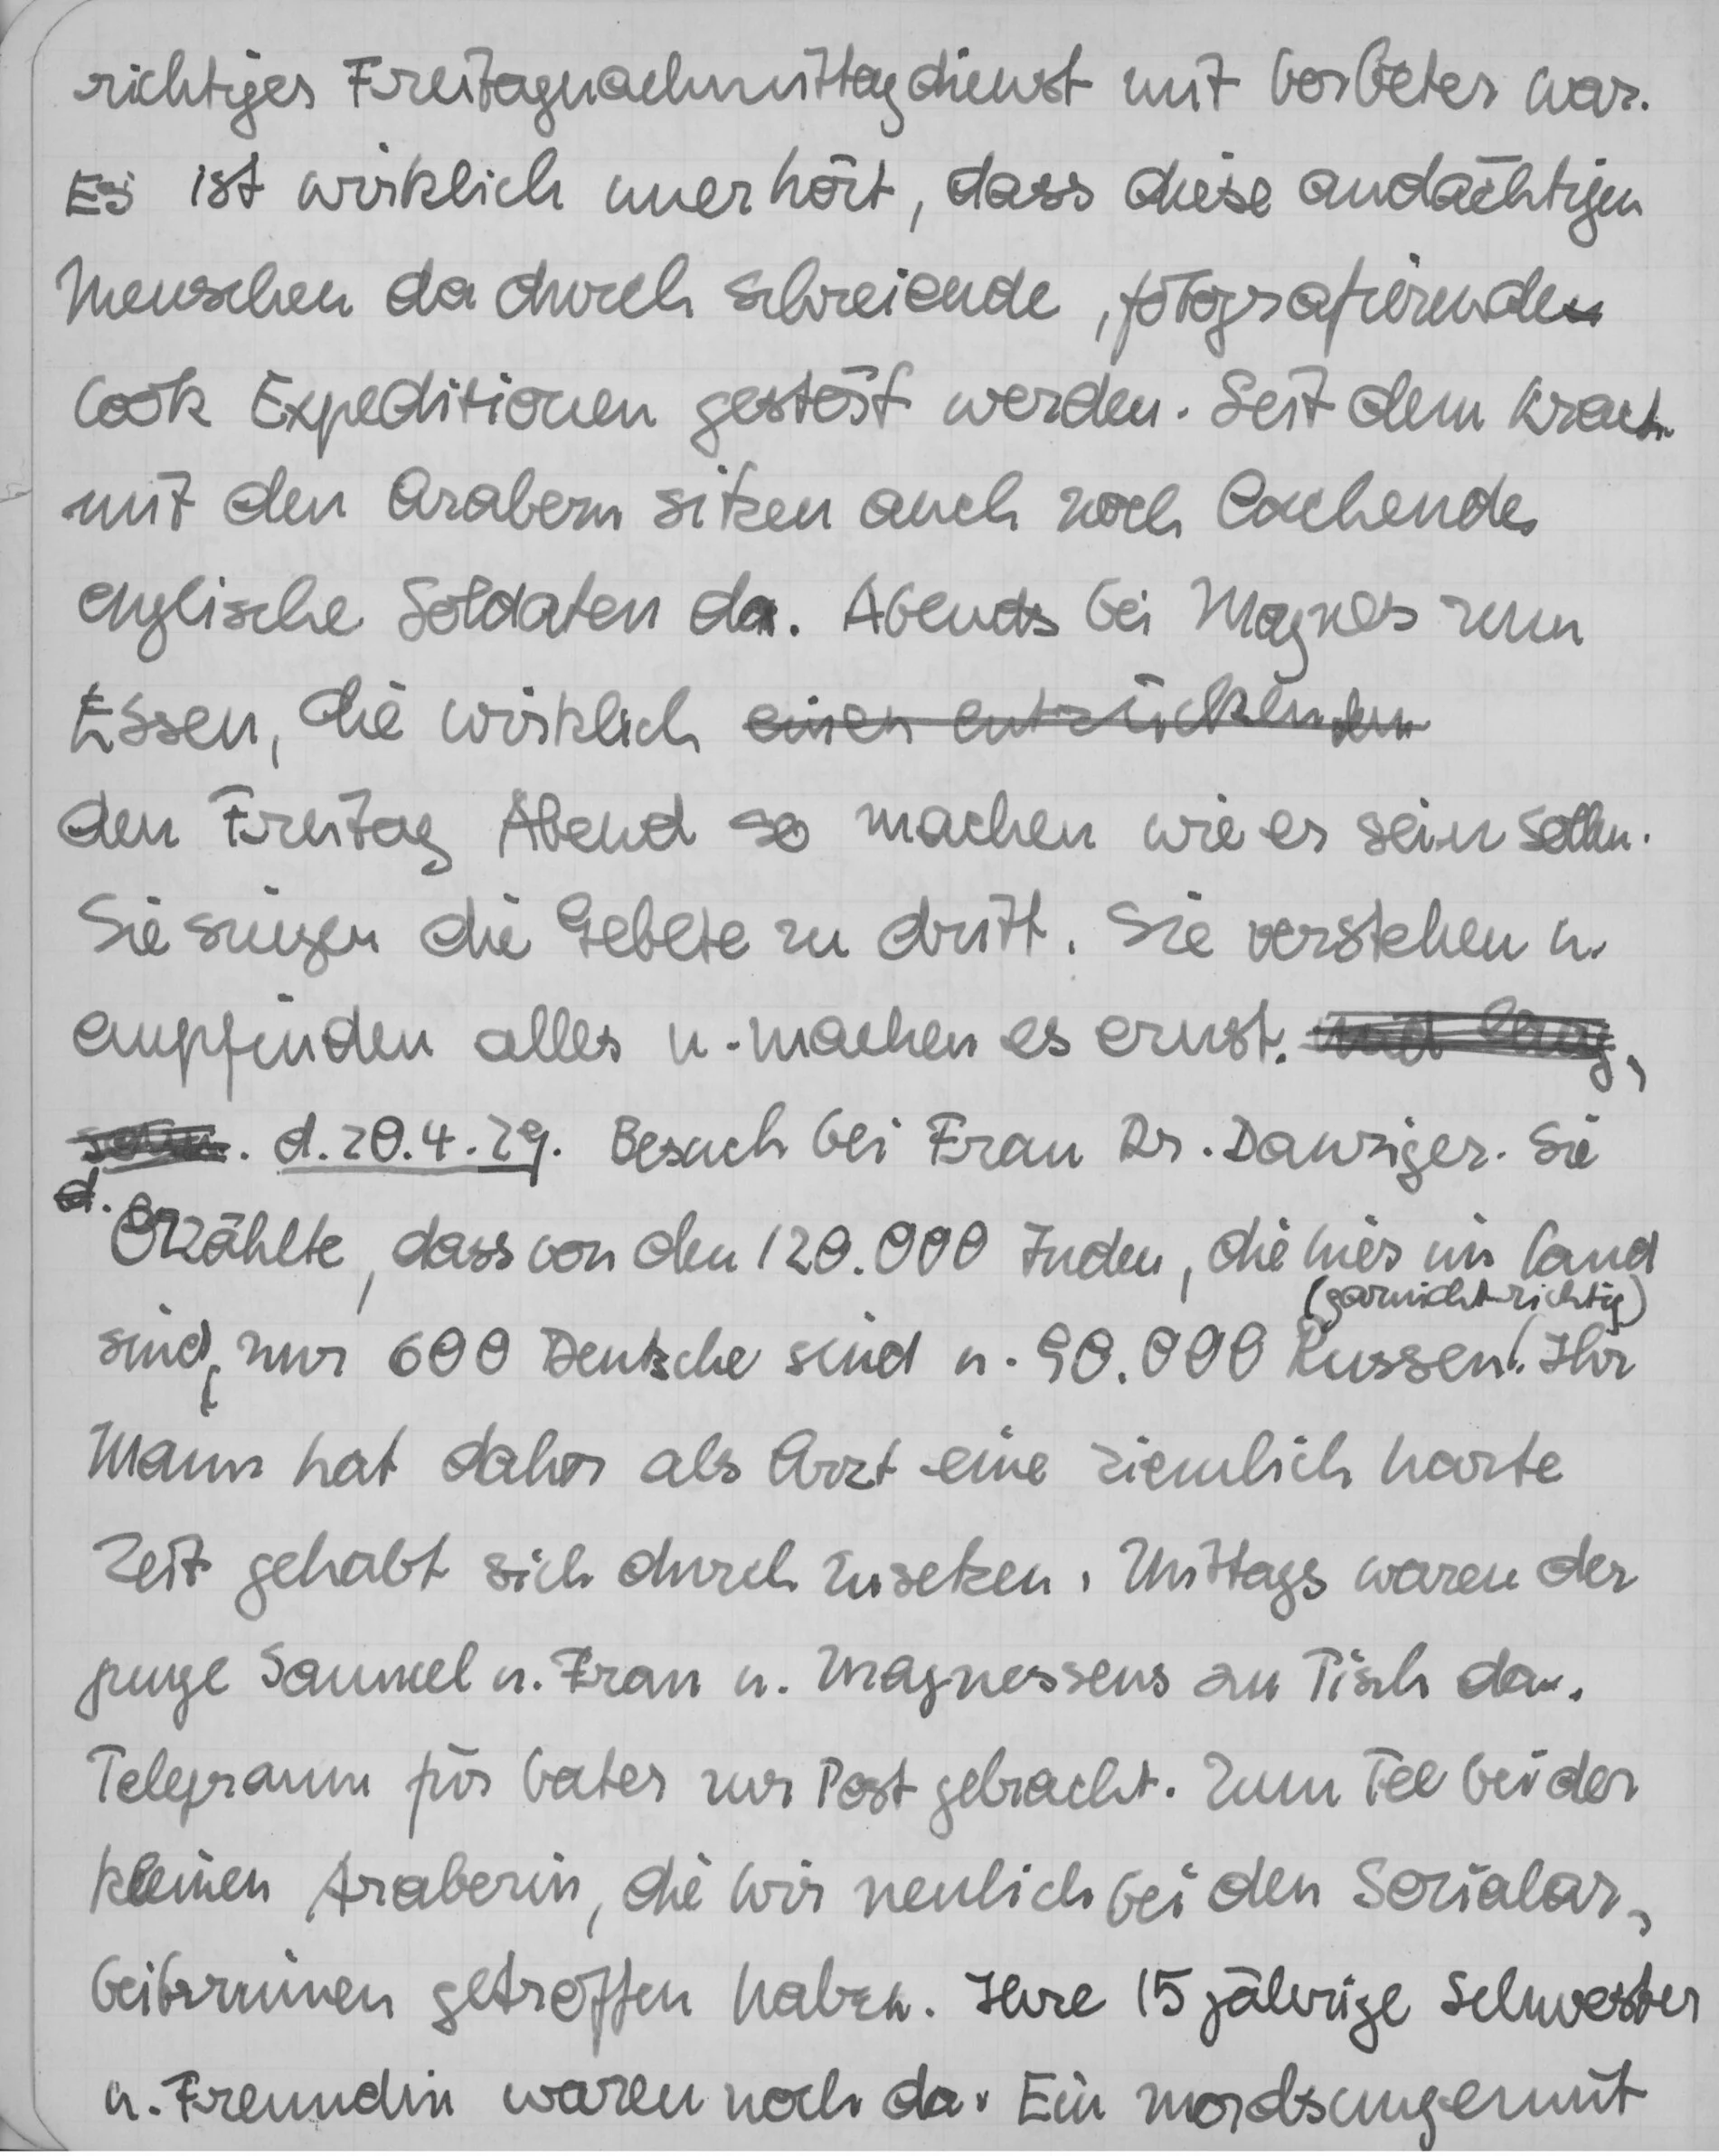 richtiges Freitagnachmittagdienst mit Vorbeter war.
Es ist wirklich unerhört, dass diese andächtigen
Menschen da durch schreiende, fotografierende
Cook Expeditionen gestört werden. Seit dem Krach
mit den Arabern sitzen auch noch lachende
englische Soldaten da. Abends bei Magnes zum
Essen, die wirklich einen entzückenden
den Freitag Abend so machen wie er sein sollen.
Sie singen die Gebete zu dritt. Sie verstehen u.
empfinden alles u. machen es ernst.
d. 20.4.29. Besuch bei Frau Dr. Danziger. Sie
d. Erzählte, dass von den 120.000 Juden, die hier im Land
(garnicht richtig)
sind, nur 600 Deutsche sind u. 90.000 Russen. Ihr
Mann hat daher als Arzt eine ziemlich harte
Zeit gehabt sich durch zusetzen. Mittags waren der
junge Samuel u. Frau u. Magnessens zu Tisch da.
Telegramm für Vater zur Post gebracht. Zum Tee bei der
kleinen Araberin, die wir neulich bei den Sozialar-
beiterinnen getroffen haben. Ihre 15 jährige Schwester
u. Freundin waren noch da. Ein